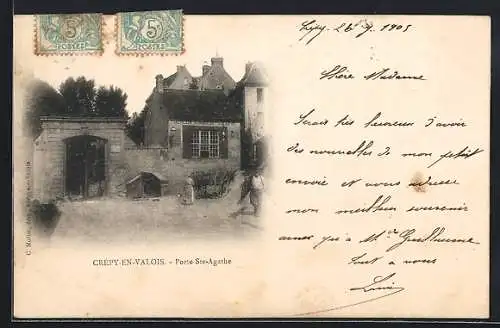 5
5
Crépy 26 9 1905
Chère Madame
Serais très heureux d'avoir
des nouvelles de mon petit
envoie et vous adresse
mon meilleur souvenir
ainsi qu'à Mr Guillaume
Tout à vous
CRÉPY-EN-VALOIS. - Porte Ste-Agathe